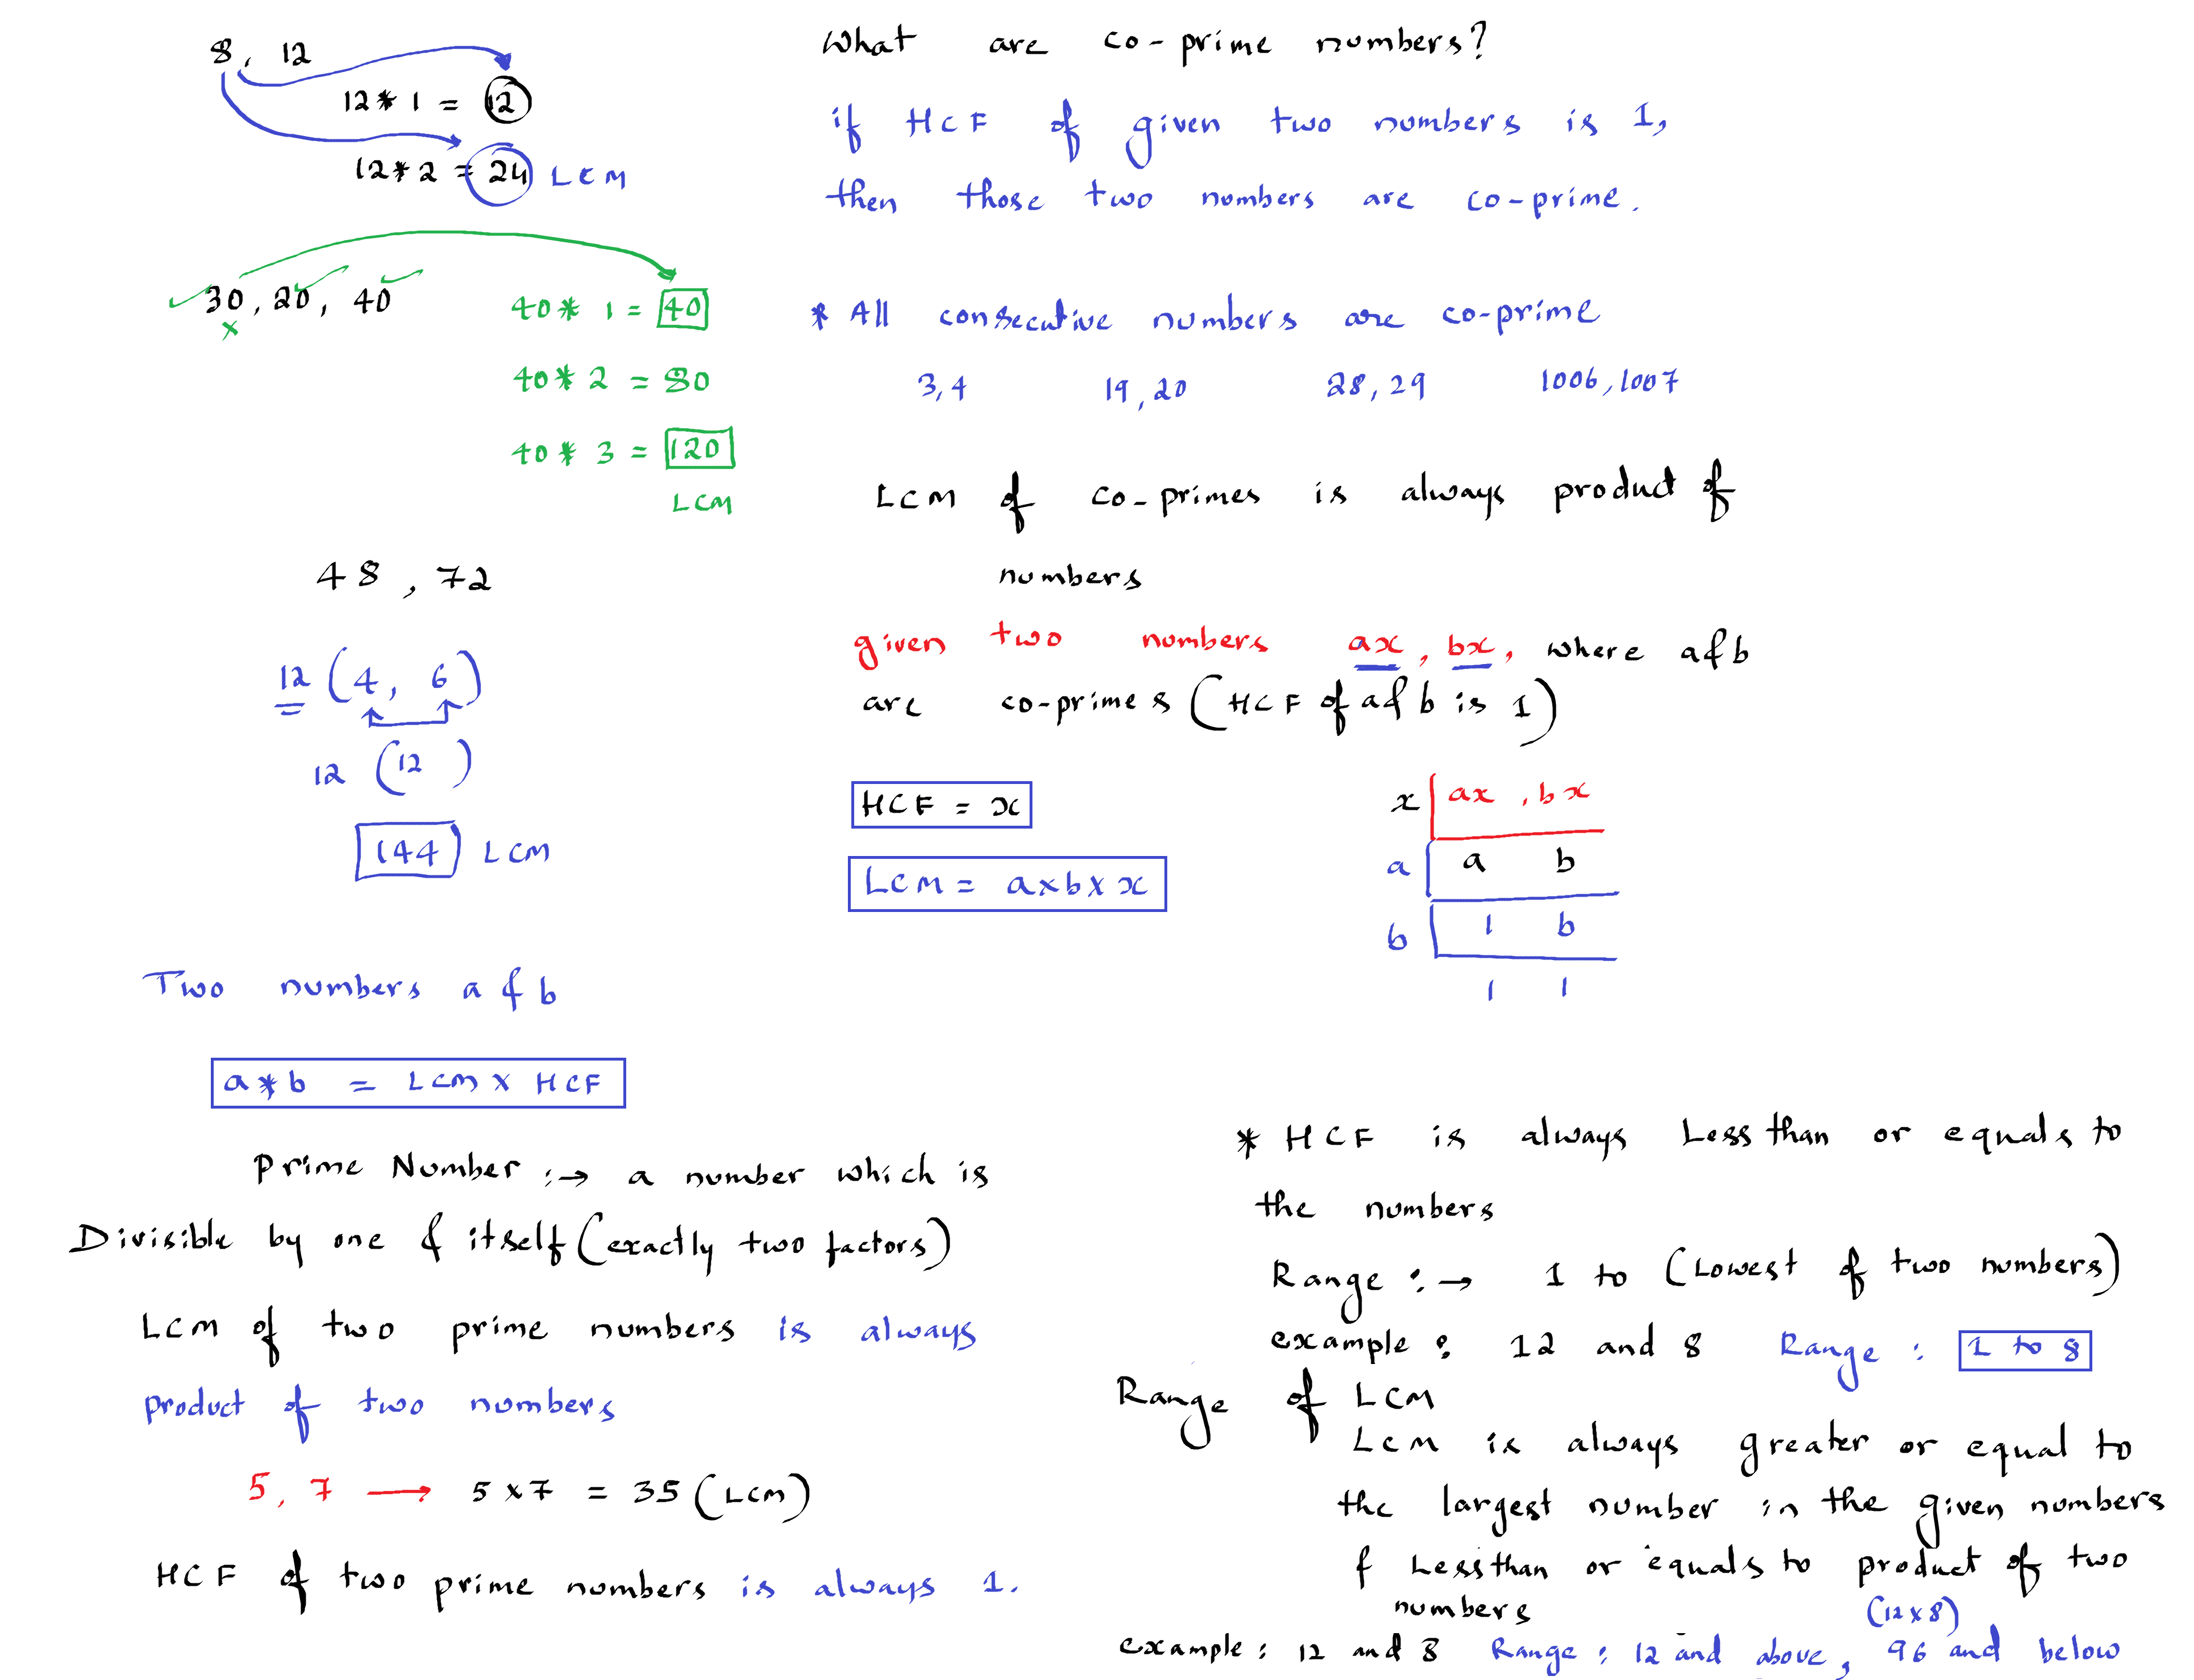 8, 12
12 * 1 = 12
12 * 2 = 24 LCM
30, 20, 40
40 * 1 = 40
40 * 2 = 80
40 * 3 = 120
LCM
48, 72
12 (4, 6)
12 (12 )
144 LCM
Two numbers a & b
a * b = LCM x HCF
Prime Number :→ a number which is
Divisible by one & itself (exactly two factors)
LCM of two prime numbers is always
product of two numbers
5, 7 → 5 x 7 = 35 (LCM)
HCF of two prime numbers is always 1.
What are co-prime numbers?
if HCF of given two numbers is 1,
then those two numbers are co-prime.
* All consecutive numbers are co-prime
3,4 19,20 28,29 1006,1007
LCM of co-primes is always product of
numbers
given two numbers ax, bx, where a & b
are co-primes (HCF of a & b is 1)
HCF = x
LCM = a x b x x
x ax , bx
a a b
b 1 b
1 1
* HCF is always Less than or equals to
the numbers
Range :→ 1 to (Lowest of two numbers)
example : 12 and 8 Range : 1 to 8
Range of LCM
LCM is always greater or equal to
the largest number in the given numbers
& Less than or equals to product of two
numbers (12 x 8)
example : 12 and 8 Range : 12 and above, 96 and below